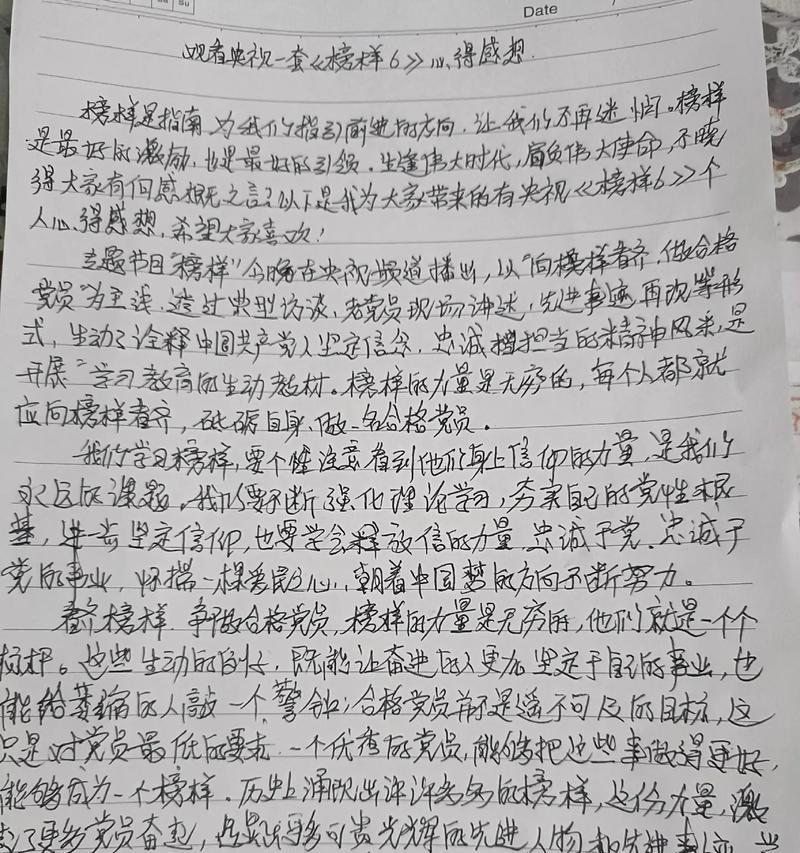 Date
观看央视一套《榜样6》心得感想.
榜样是指南,为我们指引前进的方向,让我们不再迷惘。榜样
是最好的激励,也是最好的引领。生逢伟大时代,肩负伟大使命,不晓
得大家有何感概之言?以下是我为大家带来的有央视《榜样6》个
人心得感想,希望大家喜欢!
主题节目“榜样”今晚在央视频道播出,以“向榜样看齐,做合格
党员”为主线,透过典型访谈,老党员现场讲述,先进事迹再现等形
式,生动了诠释中国共产党人坚定信念,忠诚担当的精神风采,是
开展“学习教育的生动教材。榜样的力量是无穷的,每个人都就
应向榜样看齐,砥砺自身,做一名合格党员。
我们学习榜样,要个性注意看到他们身上信仰的力量,是我们
永远的课题。我们要不断强化理论学习,夯实自己的党性根
基,进一步坚定信仰,也要学会释放信的力量,忠诚于党、忠诚于
党的事业,怀揣一棵爱民之心,朝着中国梦的方向不断努力。
看齐榜样,争做合格党员,榜样的力量是无穷的,他们就是一个个
标杆。这些生动的例子,既能让奋进的人更加坚定于自己的事业,也
能给萎缩的人敲一个警钟;合格党员并不是遥不可及的目标,这
只是对党员最低的要求,一个优秀的党员,能够把这些事做得更好,
能够成为一个榜样。历史上涌现出许许多多的榜样,这份力量,激
了更多党员奋起,可贵光辉的先进人物和先进事迹,